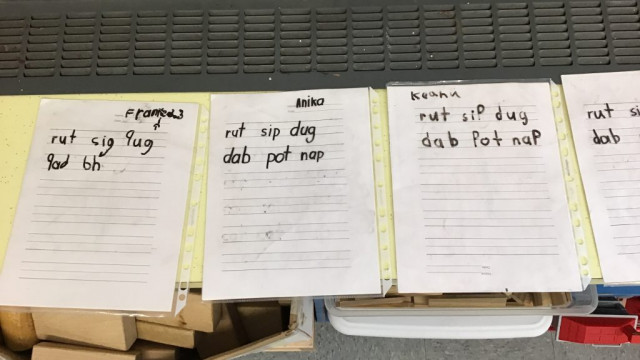 rut sig qug
qad bh
Anika
rut sip dug
dab pot nap
Keanu
rut sip dug
dab pot nap
rut si
dab